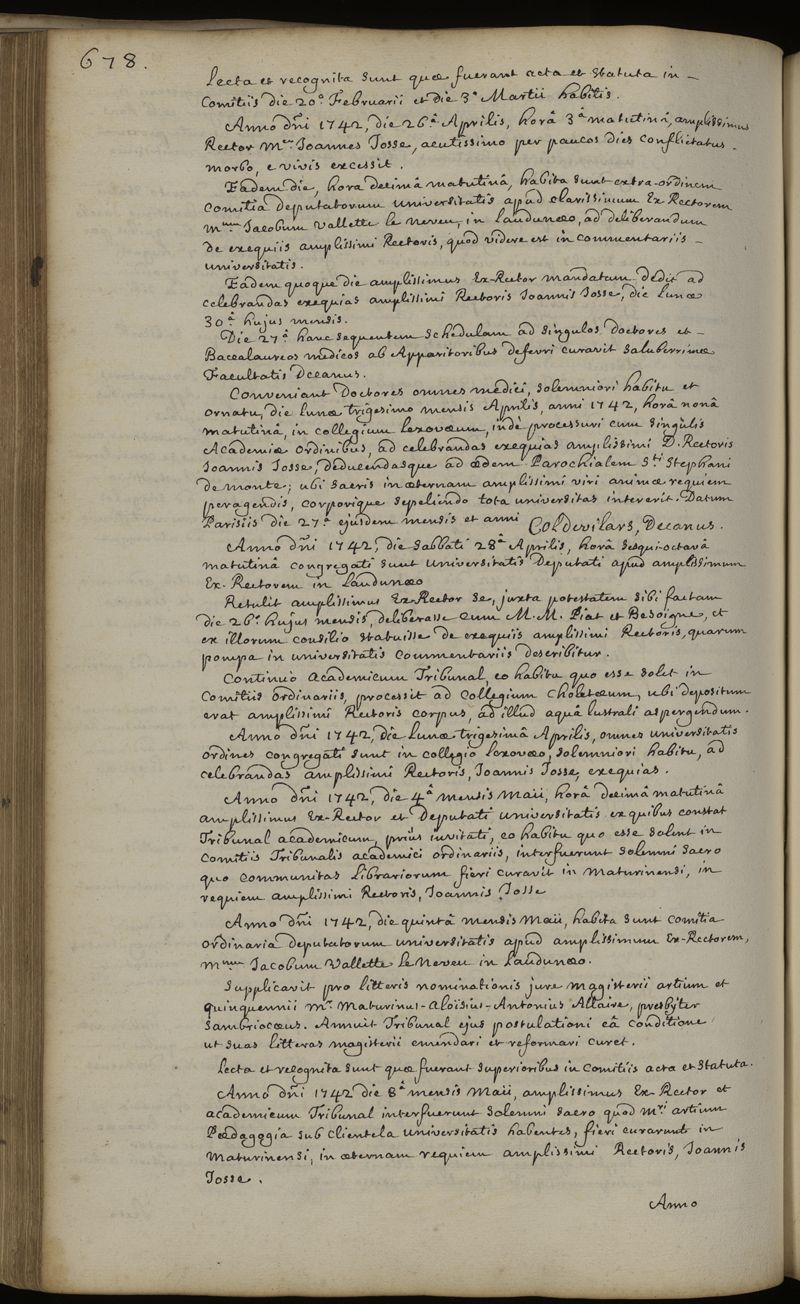 678.
Lecta et recognita sunt quæ fuerant acta et statuta in –
Comitiis die 20ª Februarii et die 3ª Martii habitis.
Anno dñi 1742, die 26ª Aprilis, horâ 3ª matutinâ, amplissimus
Rector Mer. Joannes Josse, acutissimo per paucos dies conflictatus
morbo, e vivis excessit.
Eadem die, hora decimâ matutinâ, habita sunt extra-ordinem
Comitia deputatorum universitatis apud clarissimum Ex-Rectorem
Mum Jacobum Vallette le neveu, in Laudunæo, ad deliberandum
de exequiis amplissimi Rectoris, quod videre est in commentariis –
universitatis.
Eadem quoque die amplissimus Ex-Rector mandatum dedit ad
celebrandas exequias amplissimi Rectoris Joannis Josse, die Lunæ
30ª hujus mensis.
Die 27ª hanc sequentem schedulam ad singulos doctores et –
Baccalaureos medicos ab Apparitoribus deferri curavit saluberrimæ
Facultatis Decanus.
Conveniant Doctores omnes medici, solemniori habitu et
ornatu, die lunæ trigesimo mensis Aprilis, anni 1742, horâ nonâ
matutinâ, in collegium Lexovæum, inde processuri cum singulis
Academiæ ordinibus, ad celebrandas exequias amplissimi D. Rectoris
Joannis Josse, deducendasque ad ædem Parochialem Sti Stephani
de monte; ubi sacris in æternam amplissimi viri animæ requiem
peragendis, corporique sepeliendo tota universitas intererit. Datum
Parisiis die 27ª ejusdem mensis et anni Col Devilars, Decanus.
Anno dñi 1742, die sabbati 28ª Aprilis, horâ sesqui-octavâ
matutinâ congregati sunt universitatis Deputati apud amplissimum
Ex-Rectorem in Laudunæo
Retulit amplissimus Ex-Rector se, juxta potestatem sibi factam
die 26ª hujus mensis, deliberasse cum M. M. Piat et Besoigne, et
ex illorum consilio statuisse de exequiis amplissimi Rectoris, quarum
pompa in universitatis commentariis describitur.
Continuò academicum Tribunal, eo habitu quo esse solet in
Comitiis ordinariis, processit ad Collegium Choletæum, ubi depositum
erat amplissimi Rectoris corpus, ad illud aquâ lustrali aspergendum.
Anno dñi 1742, die Lunæ trigesimâ Aprilis, omnes universitatis
ordines congregati sunt in collegio Lexovæo, solemniori habitu, ad
celebrandas amplissimi Rectoris, Joannis Josse, exequias.
Anno dñi 1742, die 4ª mensis Maii, horâ decimâ matutinâ
amplissimus Ex-Rector et Deputati universitatis ex quibus constat
Tribunal academicum, priùs invitati, eo habitu quo esse solent in
Comitiis Tribunalis academici ordinariis, interfuerunt solemni sacro
quo communitas Librariorum fieri curavit in Maturinensi, in
requiem amplissimi Rectoris, Joannis Josse
Anno dñi 1742, die quintâ mensis Maii, habita sunt comitia
ordinaria deputatorum universitatis apud amplissimum Ex-Rectorem,
Mum Jacobum Vallette le Neveu in Laudunæo.
Supplicavit pro litteris nominationis jure magisterii artium et
quinquennii Mr. Maturinus-Aloïsius-Antonius Allaire, presbyter
Sambriocæus. Annuit Tribunal ejus postulationi eâ conditione
ut suas litteras magisterii emendari et reformari curet.
Lecta et recognita sunt quæ fuerant superioribus in Comitiis acta et statuta.
Anno dñi 1742 die 8ª mensis Maii, amplissimus Ex-Rector et
academicum Tribunal interfuerunt solemni sacro quod Mri artium
Pædagogia sub clientela universitatis habentes, fieri curarunt in
Maturinensi, in æternam requiem amplissimi Rectoris, Joannis
Josse.
Anno